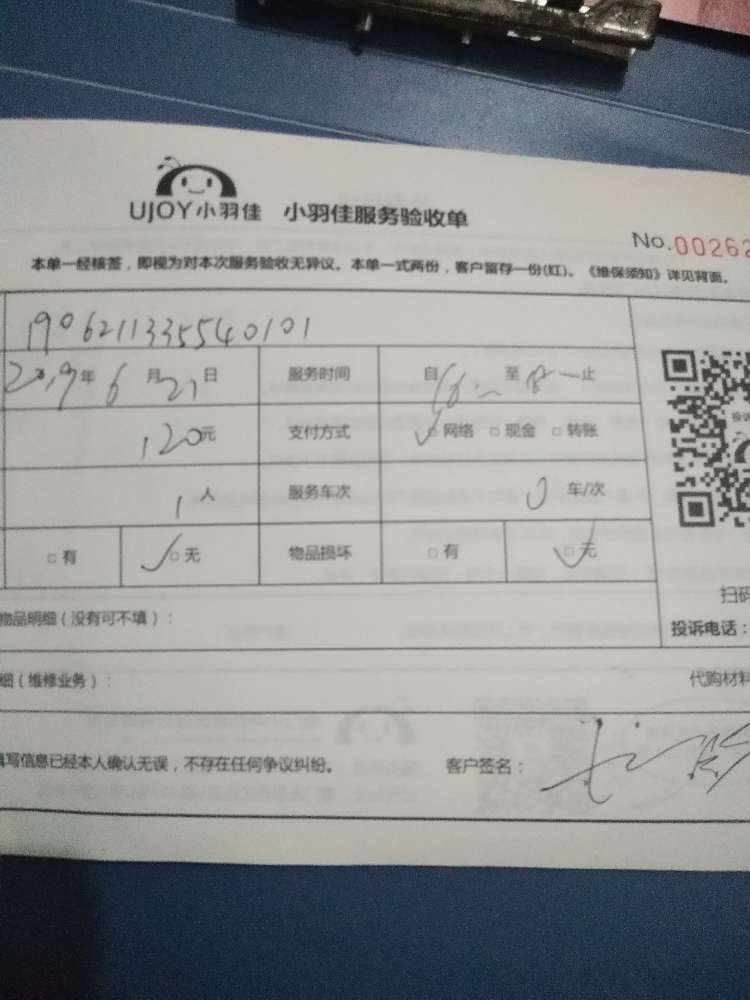 UJOY小羽佳 小羽佳服务验收单
No.00262
本单一经核签，即视为对本次服务验收无异议。本单一式两份，客户留存一份(红)。《维保须知》详见背面。
1906211335540101
2019年6月21日 服务时间 自 至 止
120元 支付方式 ✓□网络 □现金 □转账
1人 服务车次 0车/次
□有 ✓□无 物品损坏 □有 ✓□无
扫码
物品明细（没有可不填）：
投诉电话：
细（维修业务）： 代购材料
填写信息已经本人确认无误，不存在任何争议纠纷。 客户签名：